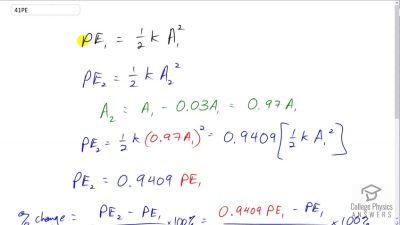 41PE
PE₁ = 1/2 k A₁²
PE₂ = 1/2 k A₂²
A₂ = A₁ - 0.03A₁ = 0.97A₁
PE₂ = 1/2 k (0.97A₁)² = 0.9409 [1/2 k A₁²]
PE₂ = 0.9409 PE₁
% change = (PE₂ - PE₁)/ ×100% = (0.9409 PE₁ - PE₁)/ ×100%
College Physics
ANSWERS